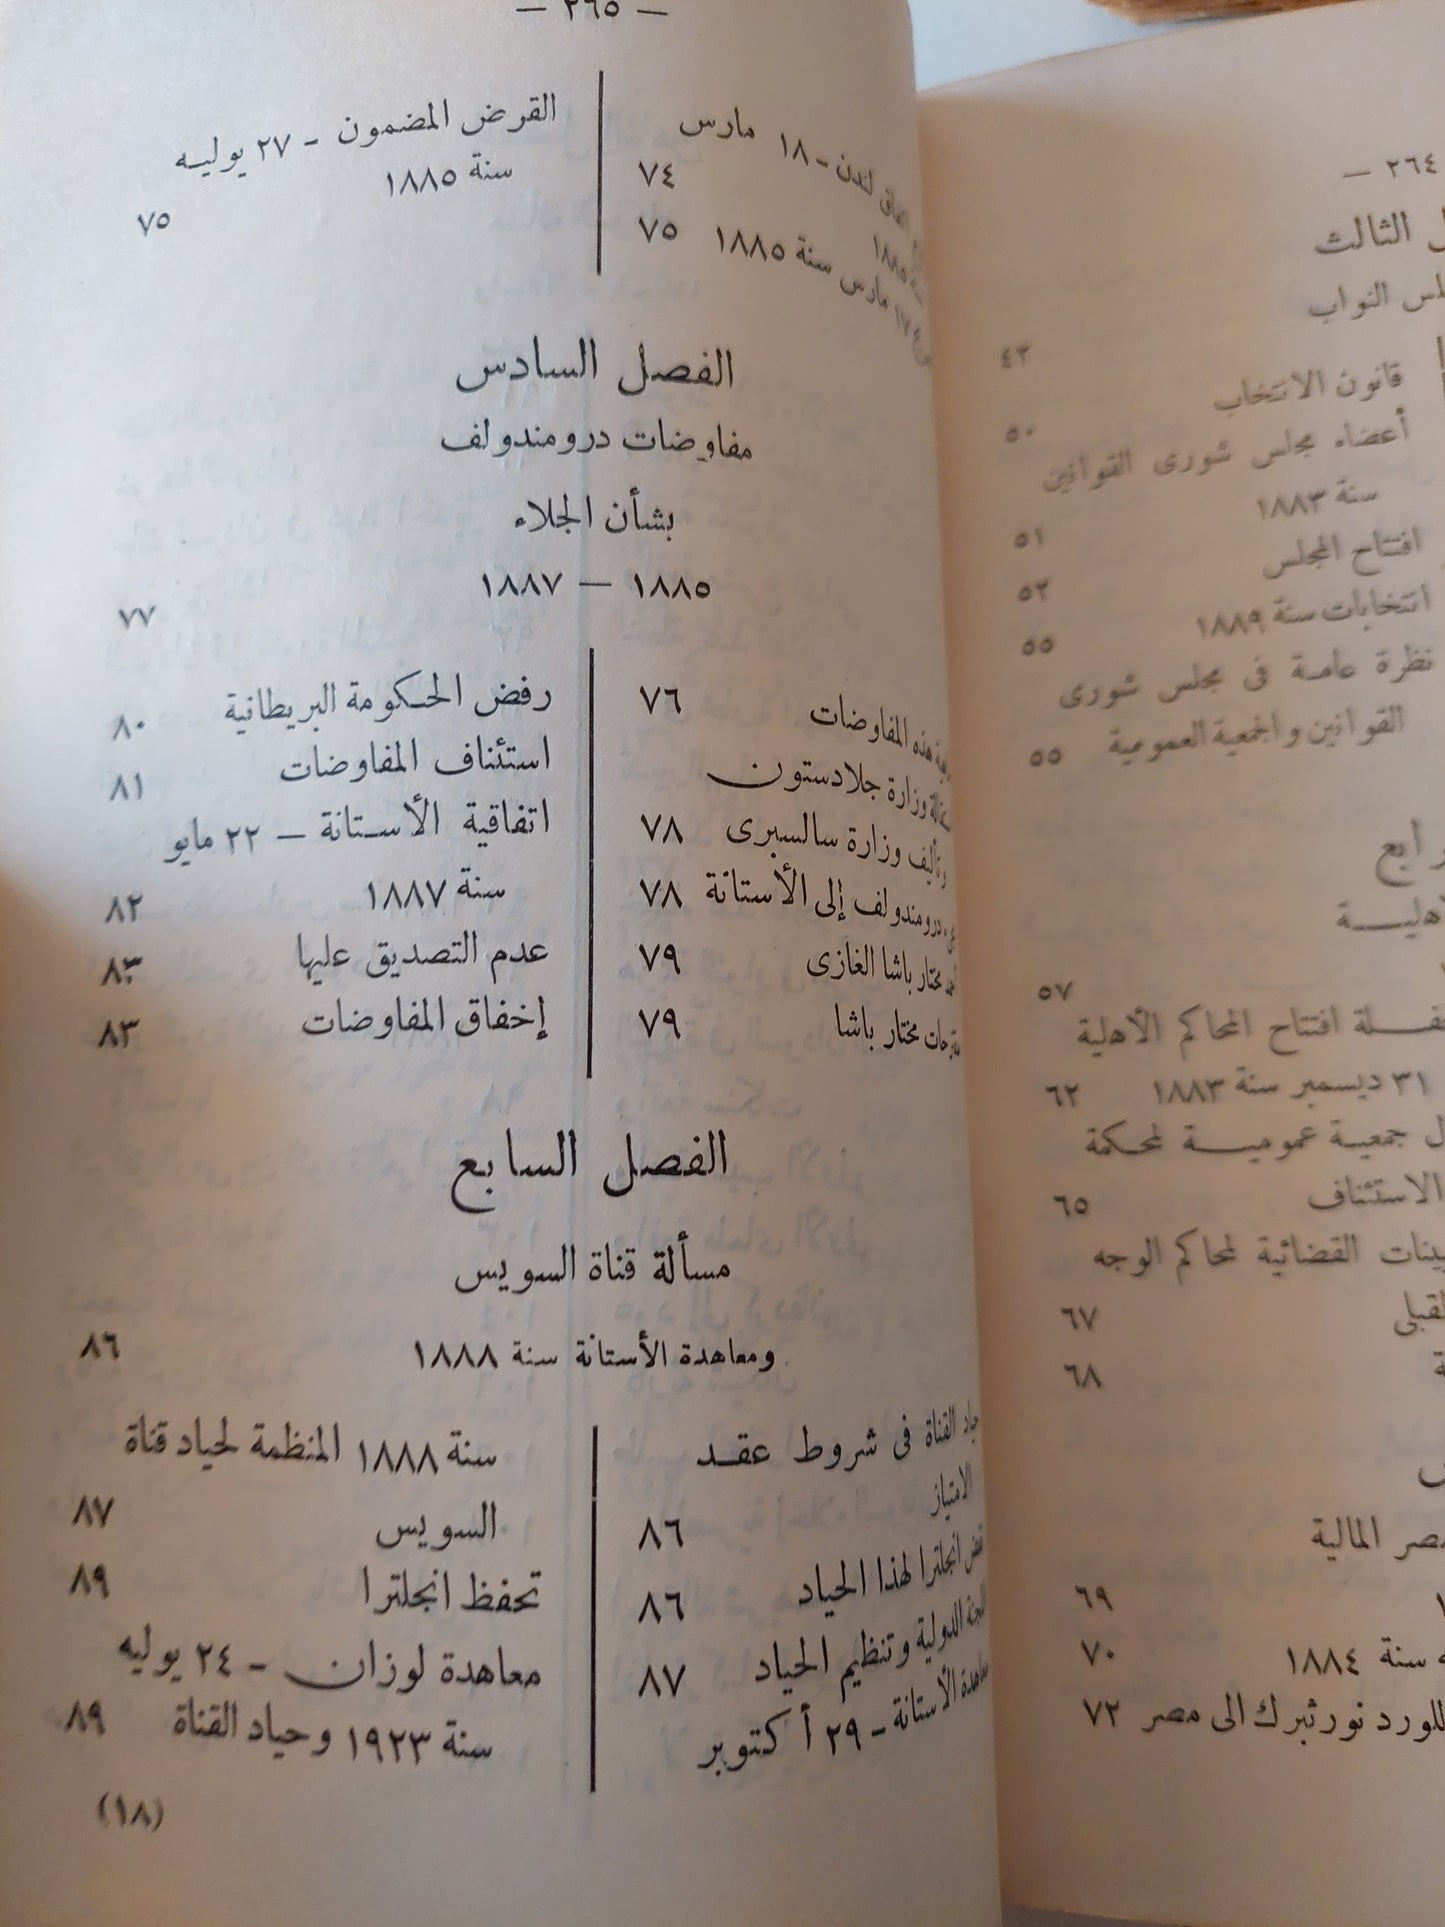 — ٢٦٤ —
الثالث
النواب
٤٣
قانون الانتخاب
٥٠
أعضاء مجلس شورى القوانين
سنة ١٨٨٣
٥١
افتتاح المجلس
٥٢
انتخابات سنة ١٨٨٩
٥٥
نظرة عامة فى مجلس شورى
القوانين والجمعية العمومية
٥٥
٥٧
افتتاح المحاكم الأهلية
٣١ ديسمبر سنة ١٨٨٣
٦٢
جمعية عمومية لمحكمة
الاستئناف
٦٥
القضائية لمحاكم الوجه
٦٧
٦٨
المالية
٦٩
سنة ١٨٨٤
٧٠
نورثبرك الى مصر
٧٢
— ٢٦٥ —
لندن - ١٨ مارس
١٨٨٥
٧٤
١٧ مارس سنة ١٨٨٥
٧٥
القرض المضمون - ٢٧ يوليه
سنة ١٨٨٥
٧٥
الفصل السادس
مفاوضات درومندولف
بشأن الجلاء
١٨٨٥ — ١٨٨٧
٧٧
هذه المفاوضات
٧٦
وزارة جلادستون
وتأليف وزارة سالسبرى
٧٨
درومندولف إلى الأستانة
٧٨
مختار باشا الغازى
٧٩
مختار باشا
٧٩
رفض الحكومة البريطانية
٨٠
استئناف المفاوضات
٨١
اتفاقية الأستانة — ٢٢ مايو
سنة ١٨٨٧
٨٢
عدم التصديق عليها
٨٣
إخفاق المفاوضات
٨٣
الفصل السابع
مسألة قناة السويس
ومعاهدة الأستانة سنة ١٨٨٨
٨٦
حياد القناة فى شروط عقد
الامتياز
٨٦
انجلترا لهذا الحياد
٨٦
الدولية وتنظيم الحياد
٨٧
الأستانة - ٢٩ أكتوبر
سنة ١٨٨٨ المنظمة لحياد قناة
السويس
٨٧
تحفظ انجلترا
٨٩
معاهدة لوزان - ٢٤ يوليه
سنة ١٩٢٣ وحياد القناة
٨٩
(١٨)